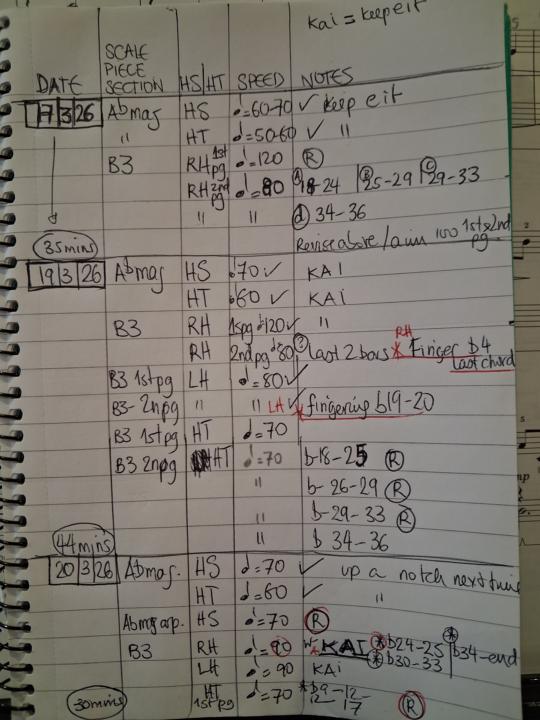 Kai = keep eit
SCALE
PIECE
DATE SECTION HS/HT SPEED NOTES
17 3 26 Ab maj HS ♩=60-70 ✓ keep eit
" HT ♩=50-60 ✓ "
B3 RH 1st pg ♩=120 Ⓡ
RH 2nd pg ♩=80 Ⓐ 18-24 | Ⓑ 25-29 | Ⓒ 29-33
" " ⓓ 34-36
35mins Revise above/aim 100 1st&2nd pg.
19 3 26 Ab maj HS ♩70 ✓ KAI
HT ♩60 ✓ KAI
B3 RH 1spg ♩120 ✓ "
RH 2nd pg ♩80 ? last 2 bars RH * Finger b4
last chord
B3 1st pg LH ♩=80 ✓
B3- 2n pg " " LH ✓ * fingering b19-20
B3 1st pg HT ♩=70
B3 2n pg HT ♩=70 b-18-25 Ⓡ
" b-26-29 Ⓡ
" b-29-33 Ⓡ
44mins " b 34-36
20 3 26 Ab maj. HS ♩=70 ✓ up a notch next time
HT ♩=60 ✓ "
Ab maj arp. HS ♩=70 Ⓡ
B3 RH ♩=90 * KAI * b24-25 * b34-end
LH ♩=90 KAI * b30-33
HT
30mins 1st pg ♩=70 * b9-12- 12-17 Ⓡ